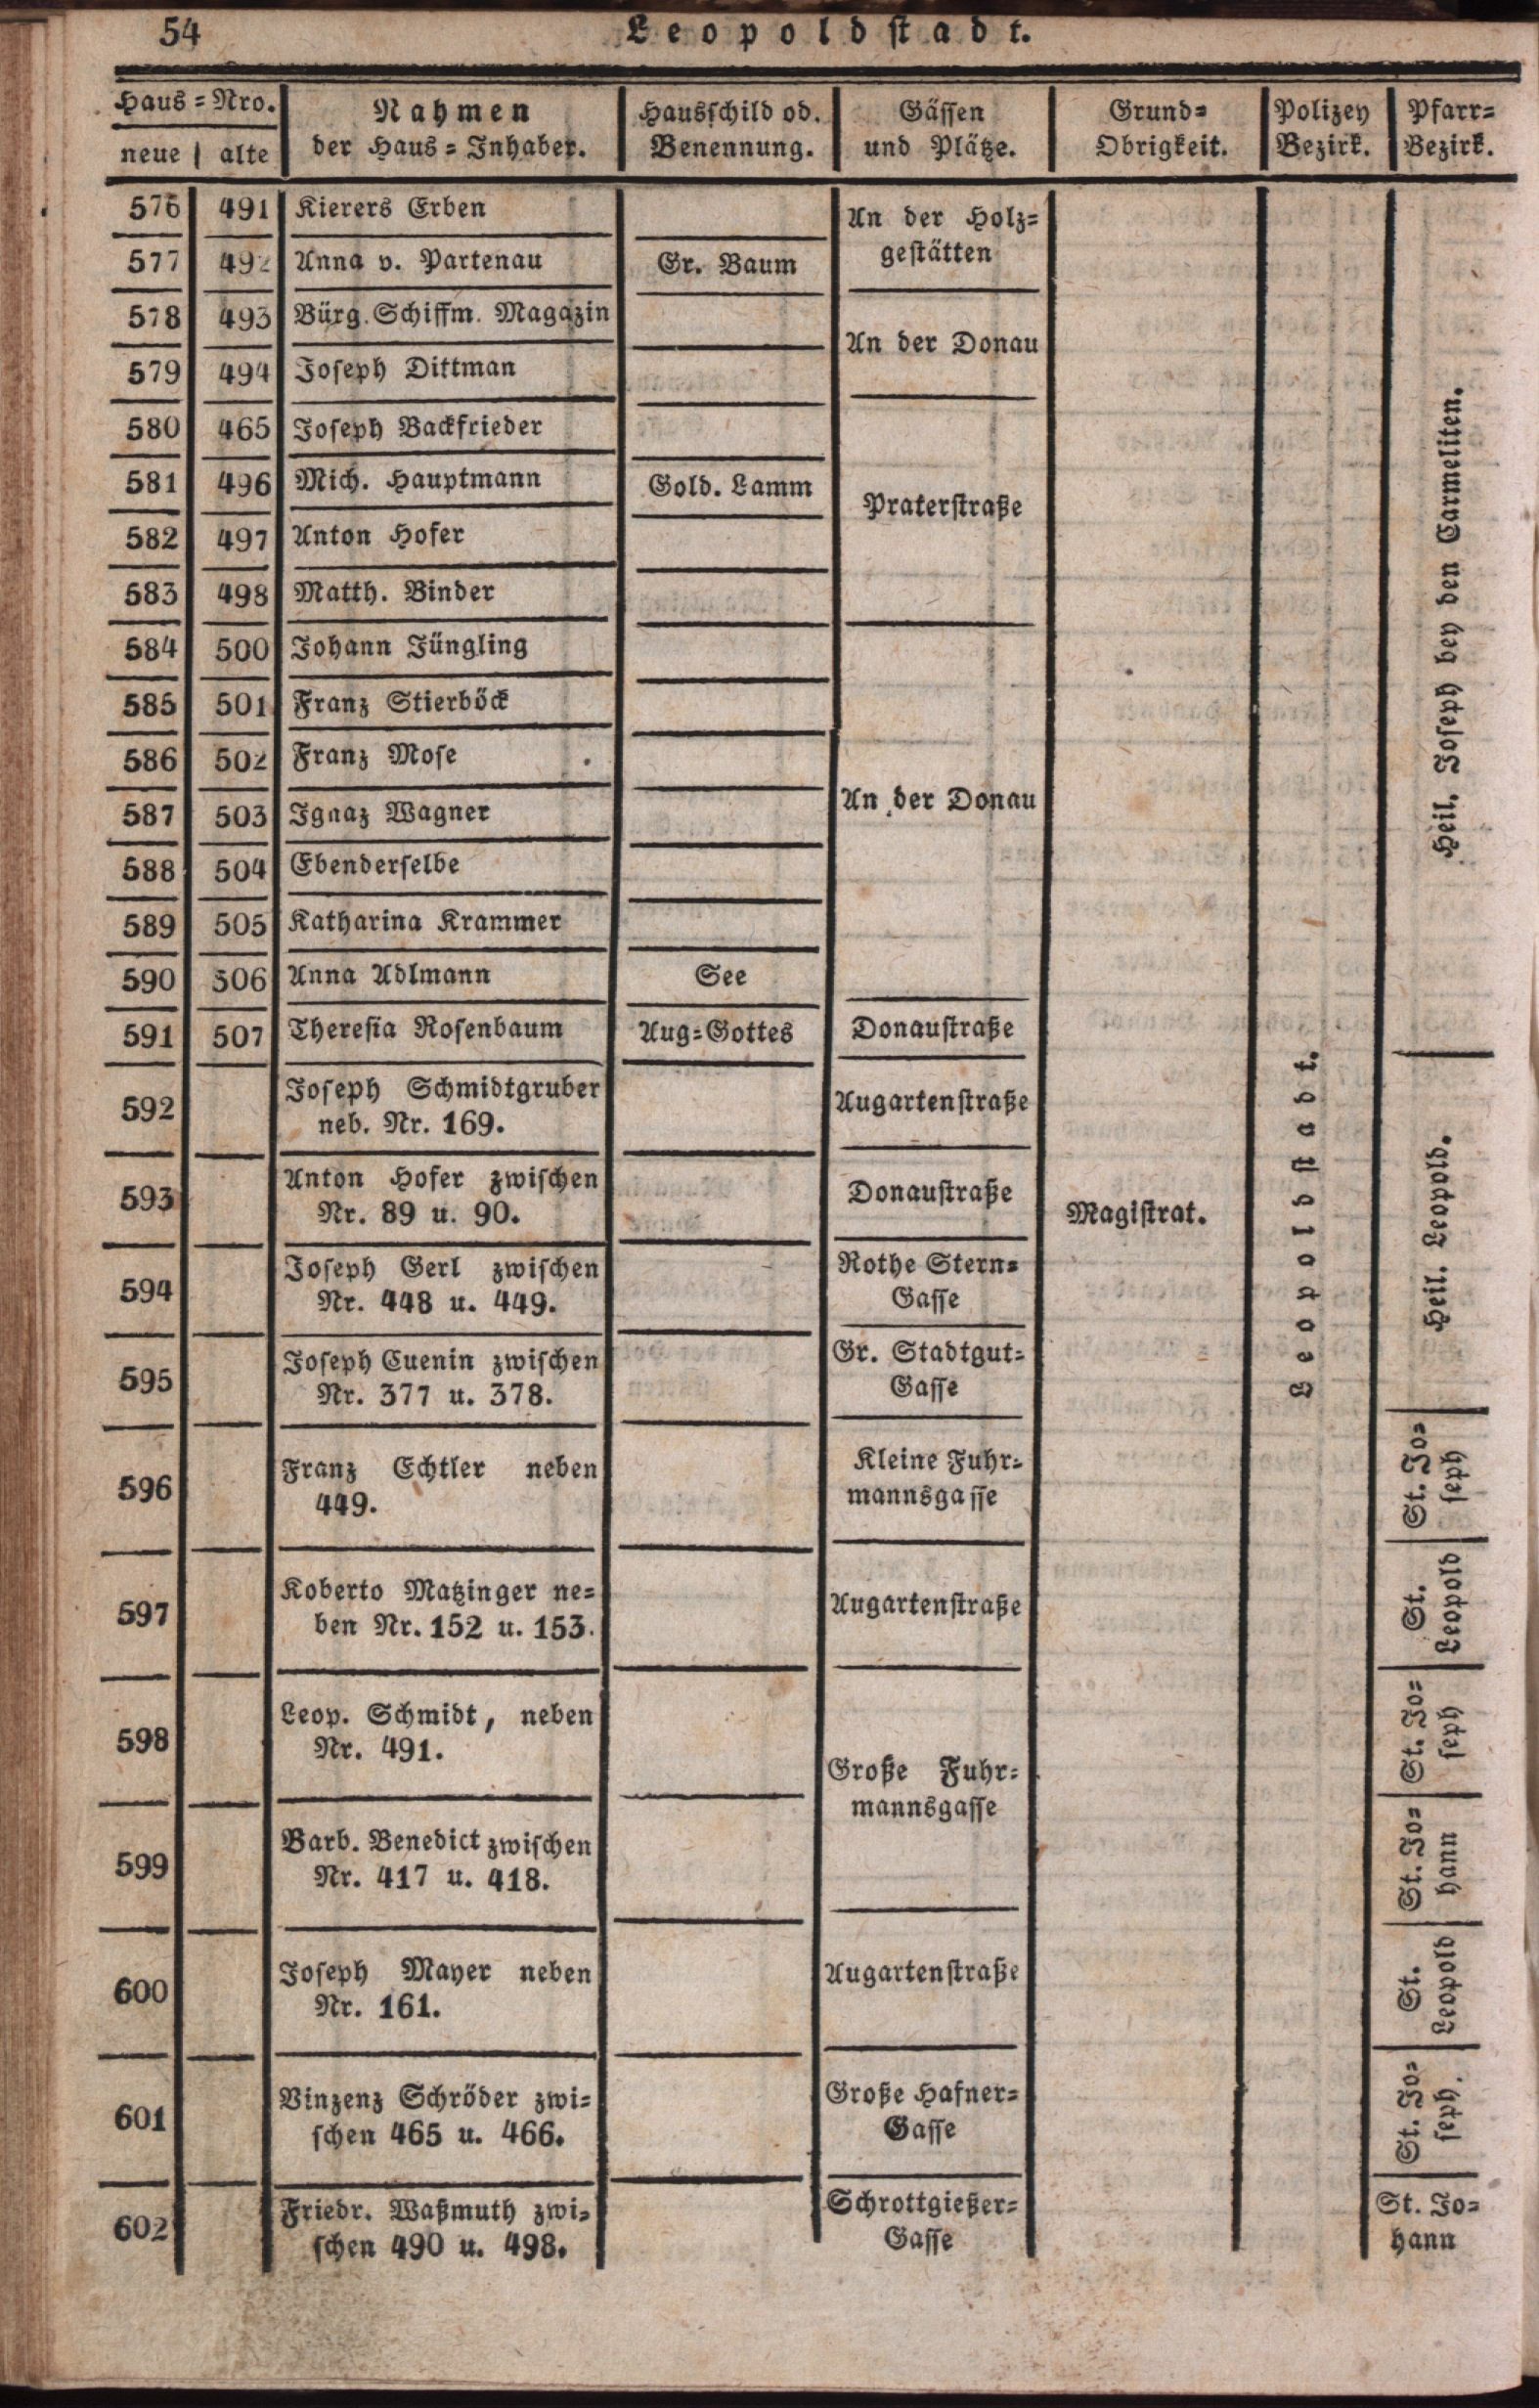 54 Leopoldstadt.
Haus=Nro. Nahmen Hausschild od. Gässen Grund= Polizey Pfarr=
neue alte der Haus=Inhaber. Benennung. und Plätze. Obrigkeit. Bezirk. Bezirk.
576 491 Kierers Erben An der Holz=
gestätten
577 492 Anna v. Partenau Gr. Baum
578 493 Bürg. Schiffm. Magazin
An der Donau
579 494 Joseph Dittman
580 465 Joseph Backfrieder
581 496 Mich. Hauptmann Gold. Lamm
Praterstraße
582 497 Anton Hofer
583 498 Matth. Binder
584 500 Johann Jüngling
585 501 Franz Stierböck
586 502 Franz Mose
587 503 Ignaz Wagner An der Donau
588 504 Ebenderselbe
589 505 Katharina Krammer
590 506 Anna Adlmann See
591 507 Theresia Rosenbaum Aug=Gottes Donaustraße
Heil. Joseph bey den Carmeliten.
592 Joseph Schmidtgruber Augartenstraße
neb. Nr. 169.
593 Anton Hofer zwischen Donaustraße
Nr. 89 u. 90.
Magistrat.
Leopoldstadt.
Heil. Leopold.
594 Joseph Gerl zwischen Rothe Stern=
Nr. 448 u. 449. Gasse
595 Joseph Cuenin zwischen Gr. Stadtgut=
Nr. 377 u. 378. Gasse
596 Franz Echtler neben Kleine Fuhr= St. Jo=
449. mannsgasse seph
597 Koberto Matzinger ne= Augartenstraße St.
ben Nr. 152 u. 153. Leopold
598 Leop. Schmidt, neben St. Jo=
Nr. 491. seph
Große Fuhr=
mannsgasse
599 Barb. Benedict zwischen St. Jo=
Nr. 417 u. 418. hann
600 Joseph Mayer neben Augartenstraße St.
Nr. 161. Leopold
601 Vinzenz Schröder zwi= Große Hafner= St. Jo=
schen 465 u. 466. Gasse seph.
602 Friedr. Waßmuth zwi= Schrottgießer= St. Jo=
schen 490 u. 498. Gasse hann